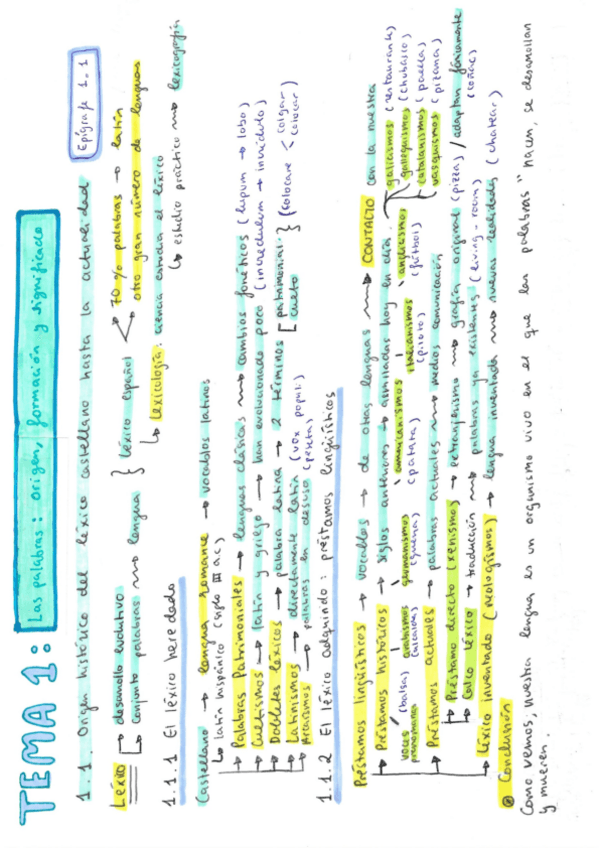 TEMA 1: Las palabras: origen, formación y significado
Epígrafe 1.1
1.1. Origen histórico del léxico castellano hasta la actualidad
Léxico → desarrollo evolutivo
→ conjunto palabras ⟿ lengua } léxico español < 70% palabras → latín
otro gran número de lenguas
↳ Lexicología: ciencia estudia el léxico
↳ estudio práctico ⟿ lexicografía
1.1.1 El léxico heredado
Castellano → lengua romance → vocablos latinos
↳ latín hispánico (siglo III a.c)
→ Palabras Patrimoniales → lenguas clásicas ⟿ cambios fonéticos (lupum → lobo)
→ Cultismos → latín y griego → han evolucionado poco (incredulum → incrédulo)
→ Dobletes léxicos → palabra latina → 2 términos [ patrimonial / culto } (colocare < colgar / colocar)
→ Latinismos → directamente latín (vox populi)
→ Arcaísmos → palabras en desuso (peseta)
1.1.2 El léxico adquirido: préstamos lingüísticos
Préstamos lingüísticos → vocablos → de otras lenguas ⟿ CONTACTO con la nuestra
→ Préstamos históricos → siglos anteriores → asimiladas hoy en día
voces prerromanas (balsa)
arabismos
germanismos (guerra)
americanismos (patata)
italianismos (piloto)
anglicismos (fútbol)
galicismos (restaurante)
galleguismos (chubasco)
catalanismos (paella)
vasquismos (pizarra)
→ Préstamos actuales → palabras actuales ⟿ medios comunicación
→ Préstamo directo (xenismo) → extranjerismo ⟿ grafía original (pizza) / adaptan fónicamente (coñac)
→ Calco léxico → traducción ⟿ palabras ya existentes (living-room)
→ Léxico inventado (neologismos) → lengua inventada ⟿ nuevas realidades (chatear)
Conclusión
Como vemos, nuestra lengua es un organismo vivo en el que las palabras "nacen, se desarrollan
y mueren.